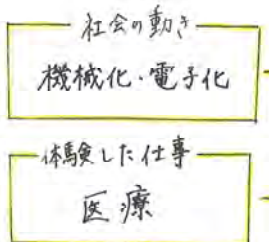 社会の動き
機械化・電子化
体験した仕事
医療